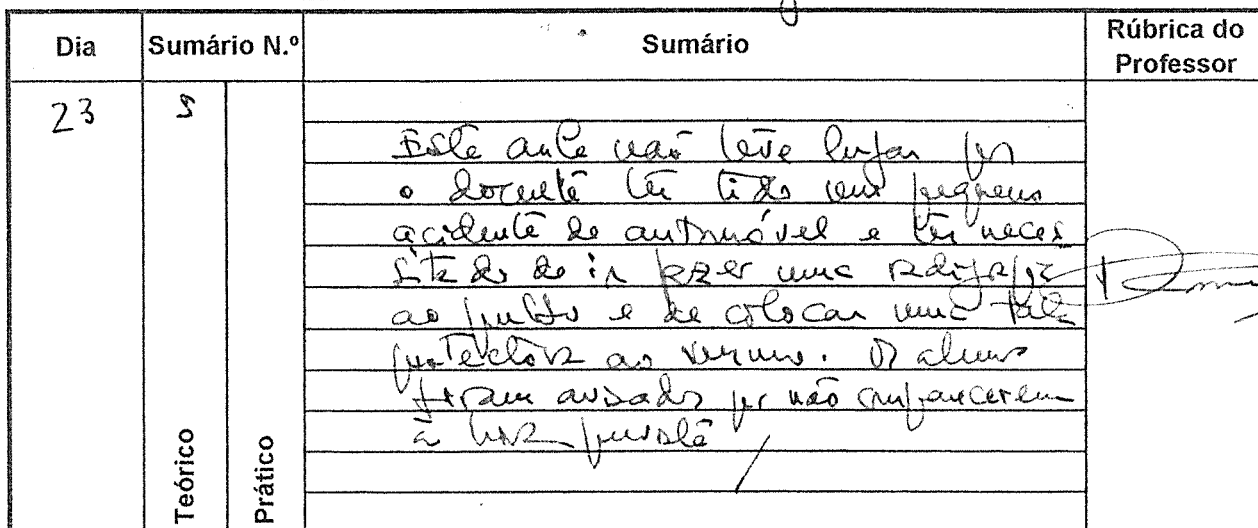 Dia Sumário N.º Sumário Rúbrica do Professor
23 9
Teórico
Prático
Esta aula não teve lugar por
o docente ter tido um pequeno
acidente de automóvel e ter neces
sitado de ir fazer uma radiografia
ao pulso e de colocar uma tala
protectora ao mesmo. Os alunos
foram avisados por não comparecerem
à hora prevista